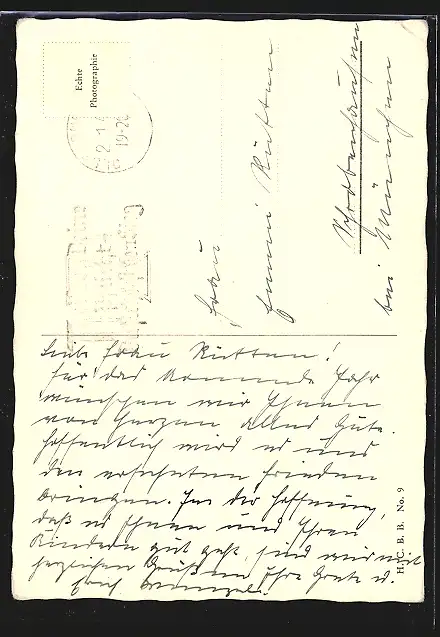 Echte
Photographie
19-20
Frau
Fanni Rütten
Schrobenhausen
bei München
Liebe Frau Rütten!
Für das kommende Jahr
wünschen wir Ihnen
von Herzen alles Gute.
Hoffentlich wird es uns
den ersehnten Frieden
bringen. In der Hoffnung,
daß es Ihnen und Ihren
Kindern gut geht, sind wir mit
herzlichen Grüßen Ihre Grete u.
Erich
H. C. B. B. No. 9